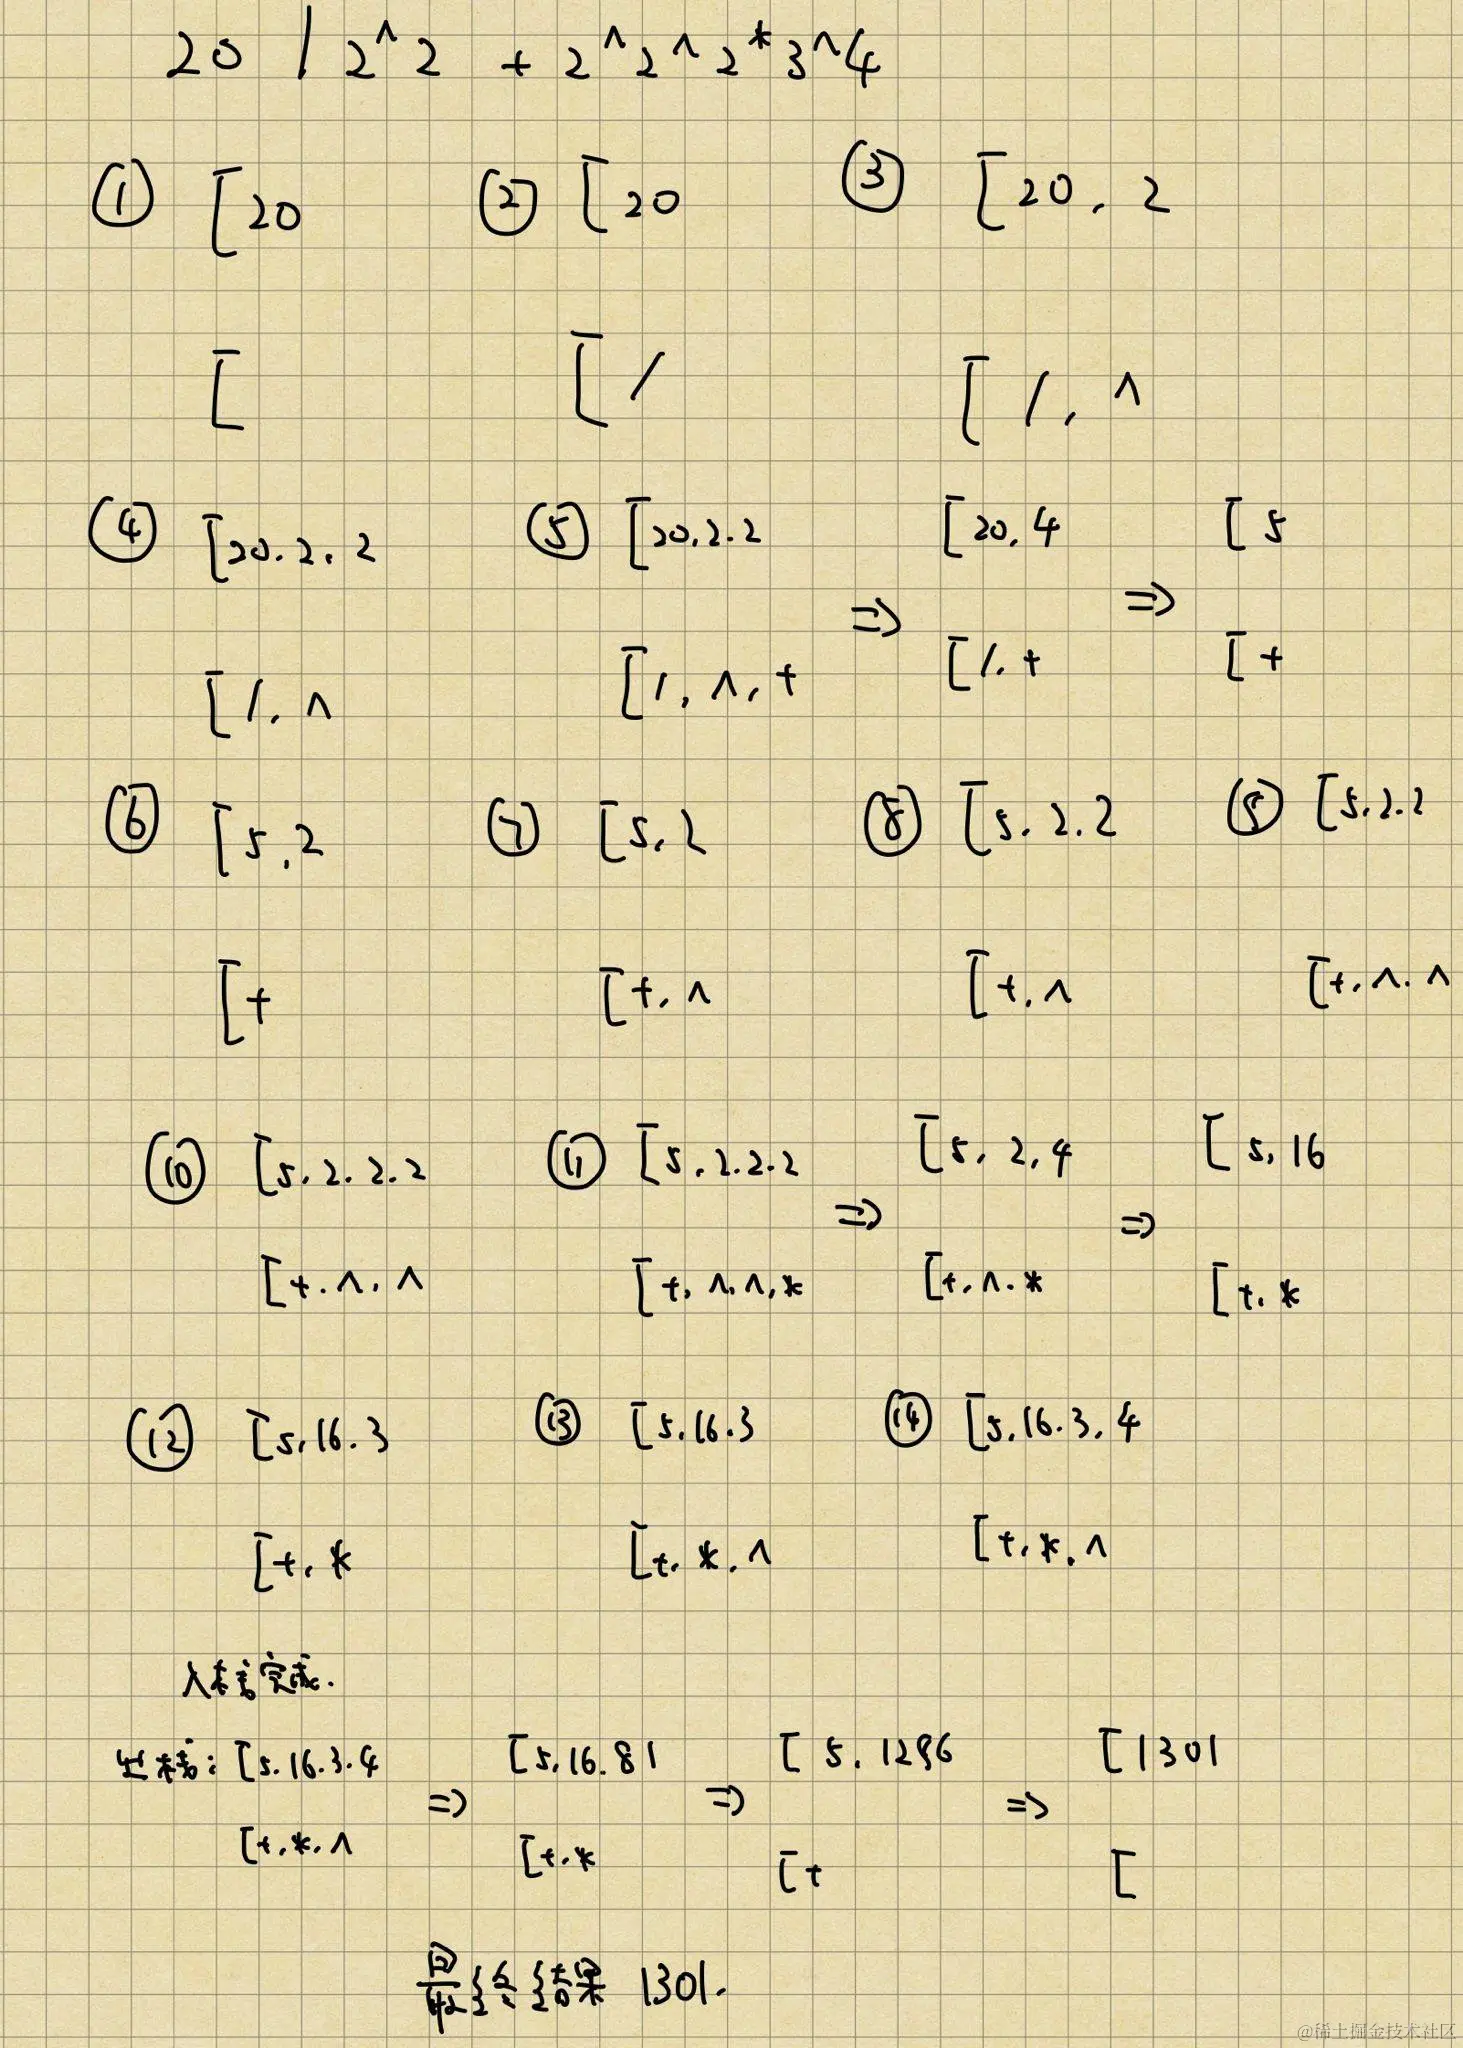 20 / 2^2 + 2^2^2*3^4
① [20 ② [20 ③ [20, 2
[ [/ [/, ^
④ [20.2.2 ⑤ [20.2.2 [20,4 [5
=> =>
[/, ^ [/, ^, + [/.+ [+
⑥ [5,2 ⑦ [5,2 ⑧ [5.2.2 ⑨ [5.2.2
[+ [+,^ [+,^ [+,^.^
⑩ [5.2.2.2 ⑪ [5.2.2.2 [5,2,4 [5,16
=> =>
[+.^.^ [+,^.^,* [+,^.* [+.*
⑫ [5,16.3 ⑬ [5.16.3 ⑭ [5.16.3.4
[+.* [+.*.^ [+.*.^
入栈完成.
出栈: [5.16.3.4 => [5,16.81 => [5.1296 => [1301
[+.*.^ [+.* [+ [
最终结果 1301.
@稀土掘金技术社区